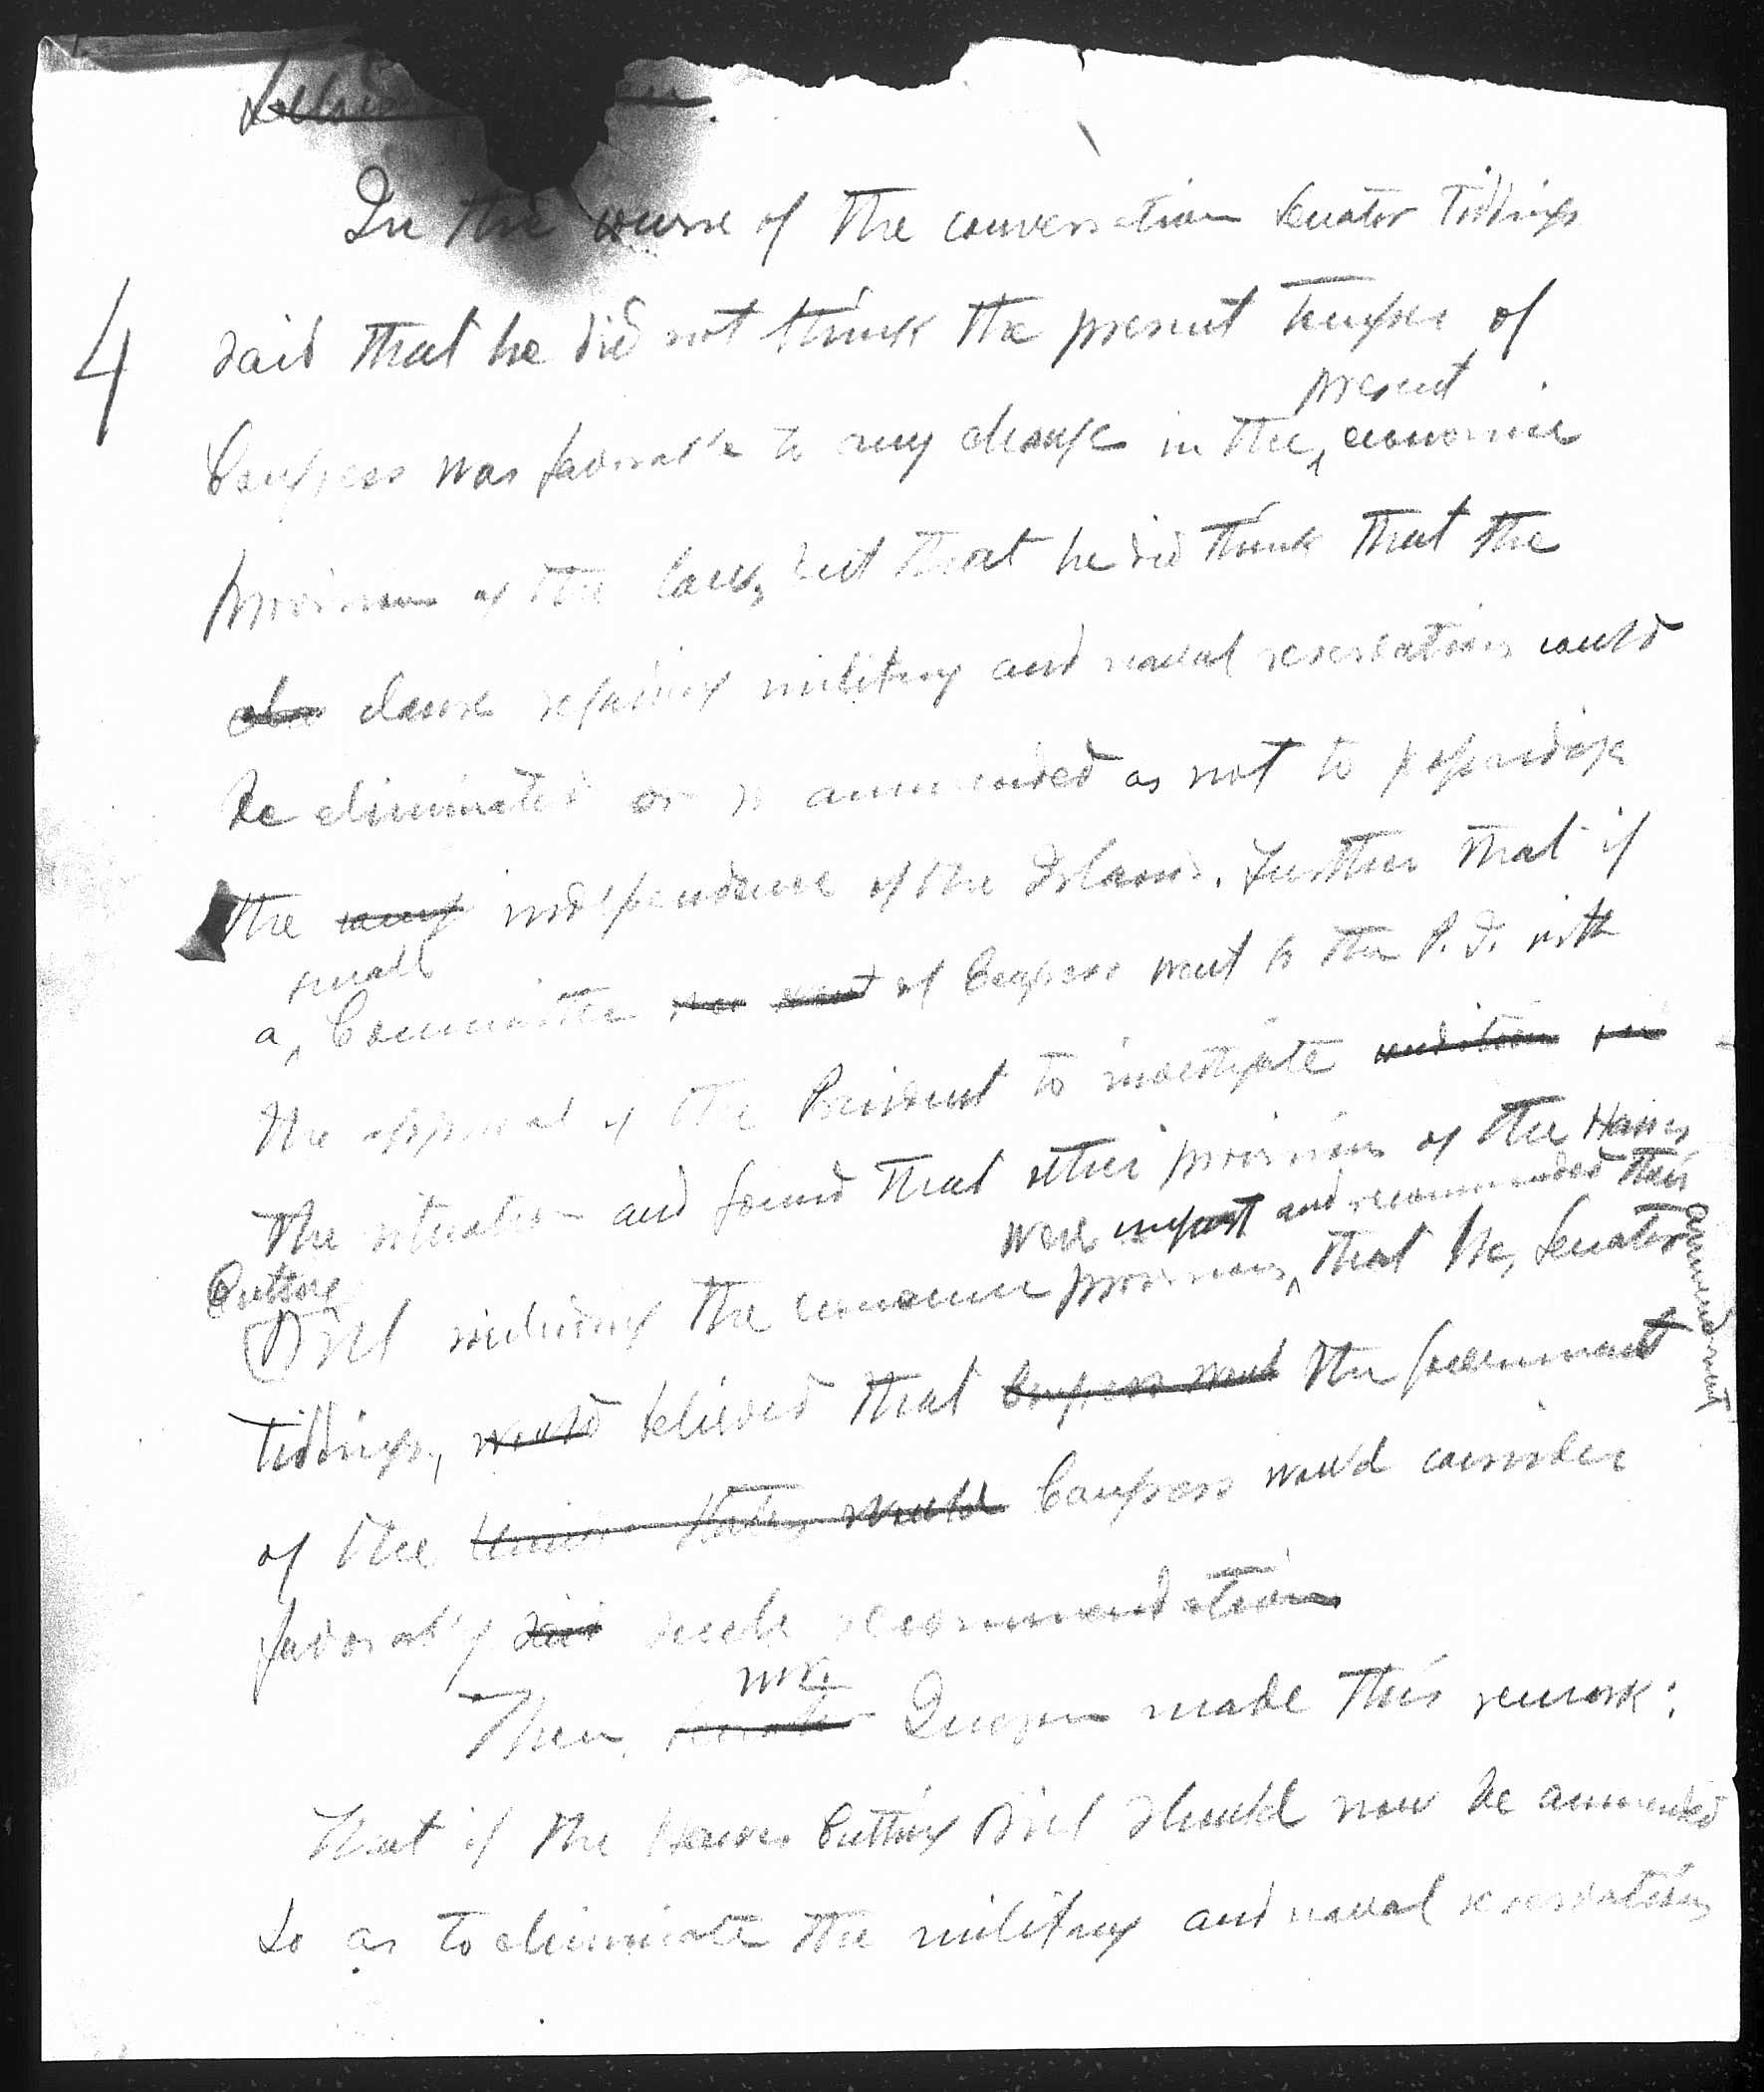 In the course of the conversation Senator Tiddings
4
said that he did not think the present temper of
present
Congress was favorable to any change in the economic
provisions of the law, but that he did think that the
clause regarding military and naval reservations could
be eliminated or so ammended as not to
the many independence of the Islands. Further that if
small
a Committee was sent of Congress went to the P. I. with
the approval of the President to investigate conditions
the situation and found that other provisions of the Hawes
were unjust and recommended their
ammendment
Cutting
Bill including the economic provisions, that he, Senator
Tiddings, would believed that Congress would the Government
of the United States would Congress would consider
favorably said such recommendation
Mr.
Then Senator Quezon made this remark:
that if the Hawes Cutting Bill should now be ammended
so as to eliminate the military and naval reservations